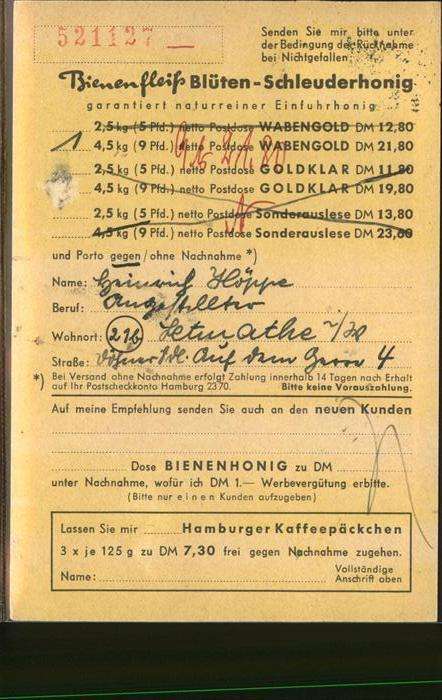 521127
Senden Sie mir bitte unter
der Bedingung der Rücknahme
bei Nichtgefallen
Bienenfleiß Blüten-Schleuderhonig
garantiert naturreiner Einfuhrhonig
2,5 kg (5 Pfd.) netto Postdose WABENGOLD DM 12,80
1 4,5 kg (9 Pfd.) netto Postdose WABENGOLD DM 21,80
2,5 kg (5 Pfd.) netto Postdose GOLDKLAR DM 11,80
4,5 kg (9 Pfd.) netto Postdose GOLDKLAR DM 19,80
2,5 kg (5 Pfd.) netto Postdose Sonderauslese DM 13,80
4,5 kg (9 Pfd.) netto Postdose Sonderauslese DM 23,80
und Porto gegen / ohne Nachnahme *)
Name: Heinrich Höppe
Beruf: Angestellter
Wohnort: 21b Letmathe i/W
Straße: Auf dem 4
*) Bei Versand ohne Nachnahme erfolgt Zahlung innerhalb 14 Tagen nach Erhalt
auf Ihr Postscheckkonto Hamburg 2370. Bitte keine Vorauszahlung.
Auf meine Empfehlung senden Sie auch an den neuen Kunden
Dose BIENENHONIG zu DM
unter Nachnahme, wofür ich DM 1.— Werbevergütung erbitte.
(Bitte nur einen Kunden aufzugeben)
Lassen Sie mir Hamburger Kaffeepäckchen
3 x je 125 g zu DM 7,30 frei gegen Nachnahme zugehen.
Name: Vollständige
Anschrift oben